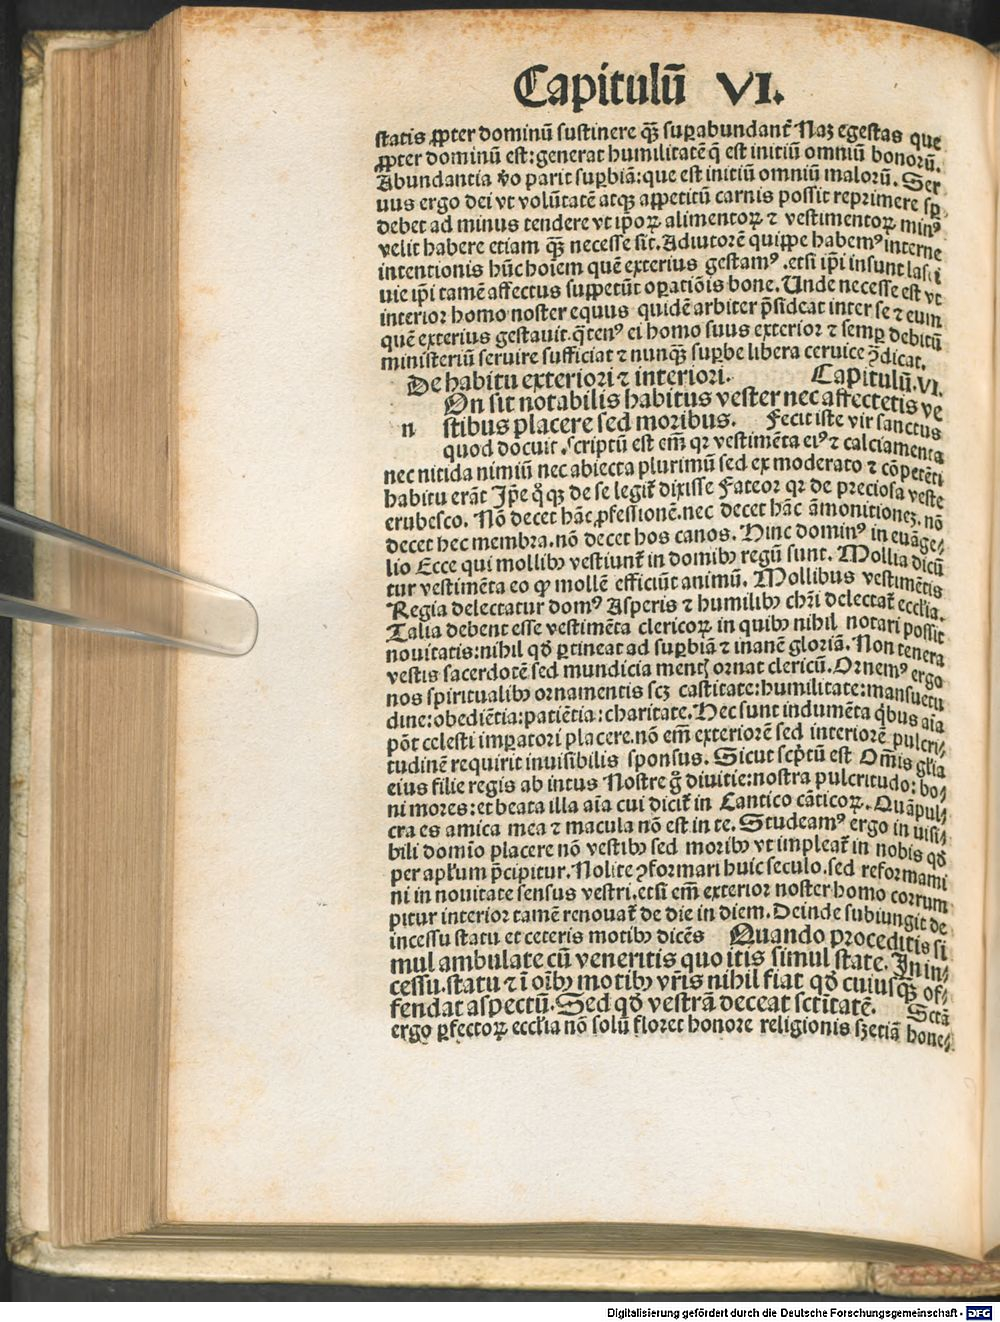 Capitulū VI.
statis ꝓpter dominū sustinere qꝫ̄ suꝑabundant᷑ Naꝫ egestas que
ꝓpter dominū est: generat humilitatē q̄ est initiū omniū bonoꝝ.
Abundantia v̊o parit suꝑbiā: que est initiū omniū maloꝝ. Ser
uus ergo dei vt volūtatē atqꝫ appetitū carnis possit reprimere sꝑ
debet ad minus tendere vt ip̄oꝝ alimentoꝝ ⁊ vestimentoꝝ minꝰ
velit habere etiam qꝫ̄ necesse sit. Adiutorē quippe habemꝰ interne
intentionis hūc hoīem quē exterius gestamꝰ. etsi ip̄i insunt lasci
uie ip̄i tamē affectus suppetūt oꝑatiōis bone. Unde necesse est vt
interior homo noster equus quidē arbiter p̄sideat inter se ⁊ eum
quē exterius gestauit. q̄tenꝰ ei homo suus exterior ⁊ semꝑ debitū
ministeriū seruire sufficiat ⁊ nunqꝫ̄ suꝑbe libera ceruice ꝯ̄dicat.
De habitu exteriori ⁊ interiori. Capitulū. VI.
On sit notabilis habitus vester nec affectetis ve
n stibus placere sed moribus. Fecit iste vir sanctus
quod docuit. scriptū est em̄ qr vestimēta eiꝰ ⁊ calciamenta
nec nitida nimiū nec abiecta plurimū sed ex moderato ⁊ cōpetēti
habitu erāt Ip̄e qͦqꝫ de se legit᷑ dixisse Fateor qr de preciosa veste
erubesco. Nō decet hāc ꝓfessionē. nec decet hāc āmonitioneꝫ. nō
decet hec membra. nō decet hos canos. Hinc dominꝰ in euāge⸗
lio Ecce qui mollibꝫ vestiunt᷑ in domibꝫ regū sunt. Mollia dicū
tur vestimēta eo ꝙ mollē efficiūt animū. Mollibus vestimētis
Regia delectatur domꝰ Asperis ⁊ humilibꝫ chr̄i delectat᷑ eccl̄ia.
Talia debent esse vestimēta clericoꝝ in quibꝫ nihil notari possit
nouitatis: nihil qd̄ ꝑtineat ad suꝑbiā ⁊ inanē gloriā. Non tenera
vestis sacerdotē sed mundicia mentꝭ ornat clericū. Ornemꝰ ergo
nos spiritualibꝫ ornamentis scꝫ castitate: humilitate: mansuetu
dine: obediētia: patiētia: charitate. Hec sunt indumēta qͥbus aīa
pōt celesti imꝑatori placere. nō em̄ exteriorē sed interiorē pulcri⸗
tudinē requirit inuisibilis sponsus. Sicut scp̄tū est Om̄is gl̄ia
eius filie regis ab intus Nostre g̊ diuitie: nostra pulcritudo: bo⸗
ni mores: et beata illa aīa cui dicit᷑ in Cantico cāticoꝝ. Quāpul⸗
cra es amica mea ⁊ macula nō est in te. Studeamꝰ ergo in uisi⸗
bili domīo placere nō vestibꝫ sed moribꝫ vt impleat᷑ in nobis qd̄
per apl̄um p̄cipitur. Nolite ꝯformari huic seculo. sed reformami
ni in nouitate sensus vestri. etsi em̄ exterior noster homo corrum
pitur interior tamē renouat᷑ de die in diem. Deinde subiungit de
incessu statu et ceteris motibꝫ dicēs Quando proceditis si
mul ambulate cū veneritis quo itis simul state. In in⸗
cessu. statu ⁊ ī oībꝰ motibꝫ vr̄is nihil fiat qd̄ cuiusqꝫ̄ of⸗
fendat aspectū. Sed qd̄ vestrā deceat sctītatē. Sctā
ergo ꝑfectoꝝ eccl̄ia nō solū floret honore religionis sꝫ etiā hone⸗
Digitalisierung gefördert durch die Deutsche Forschungsgemeinschaft - DFG